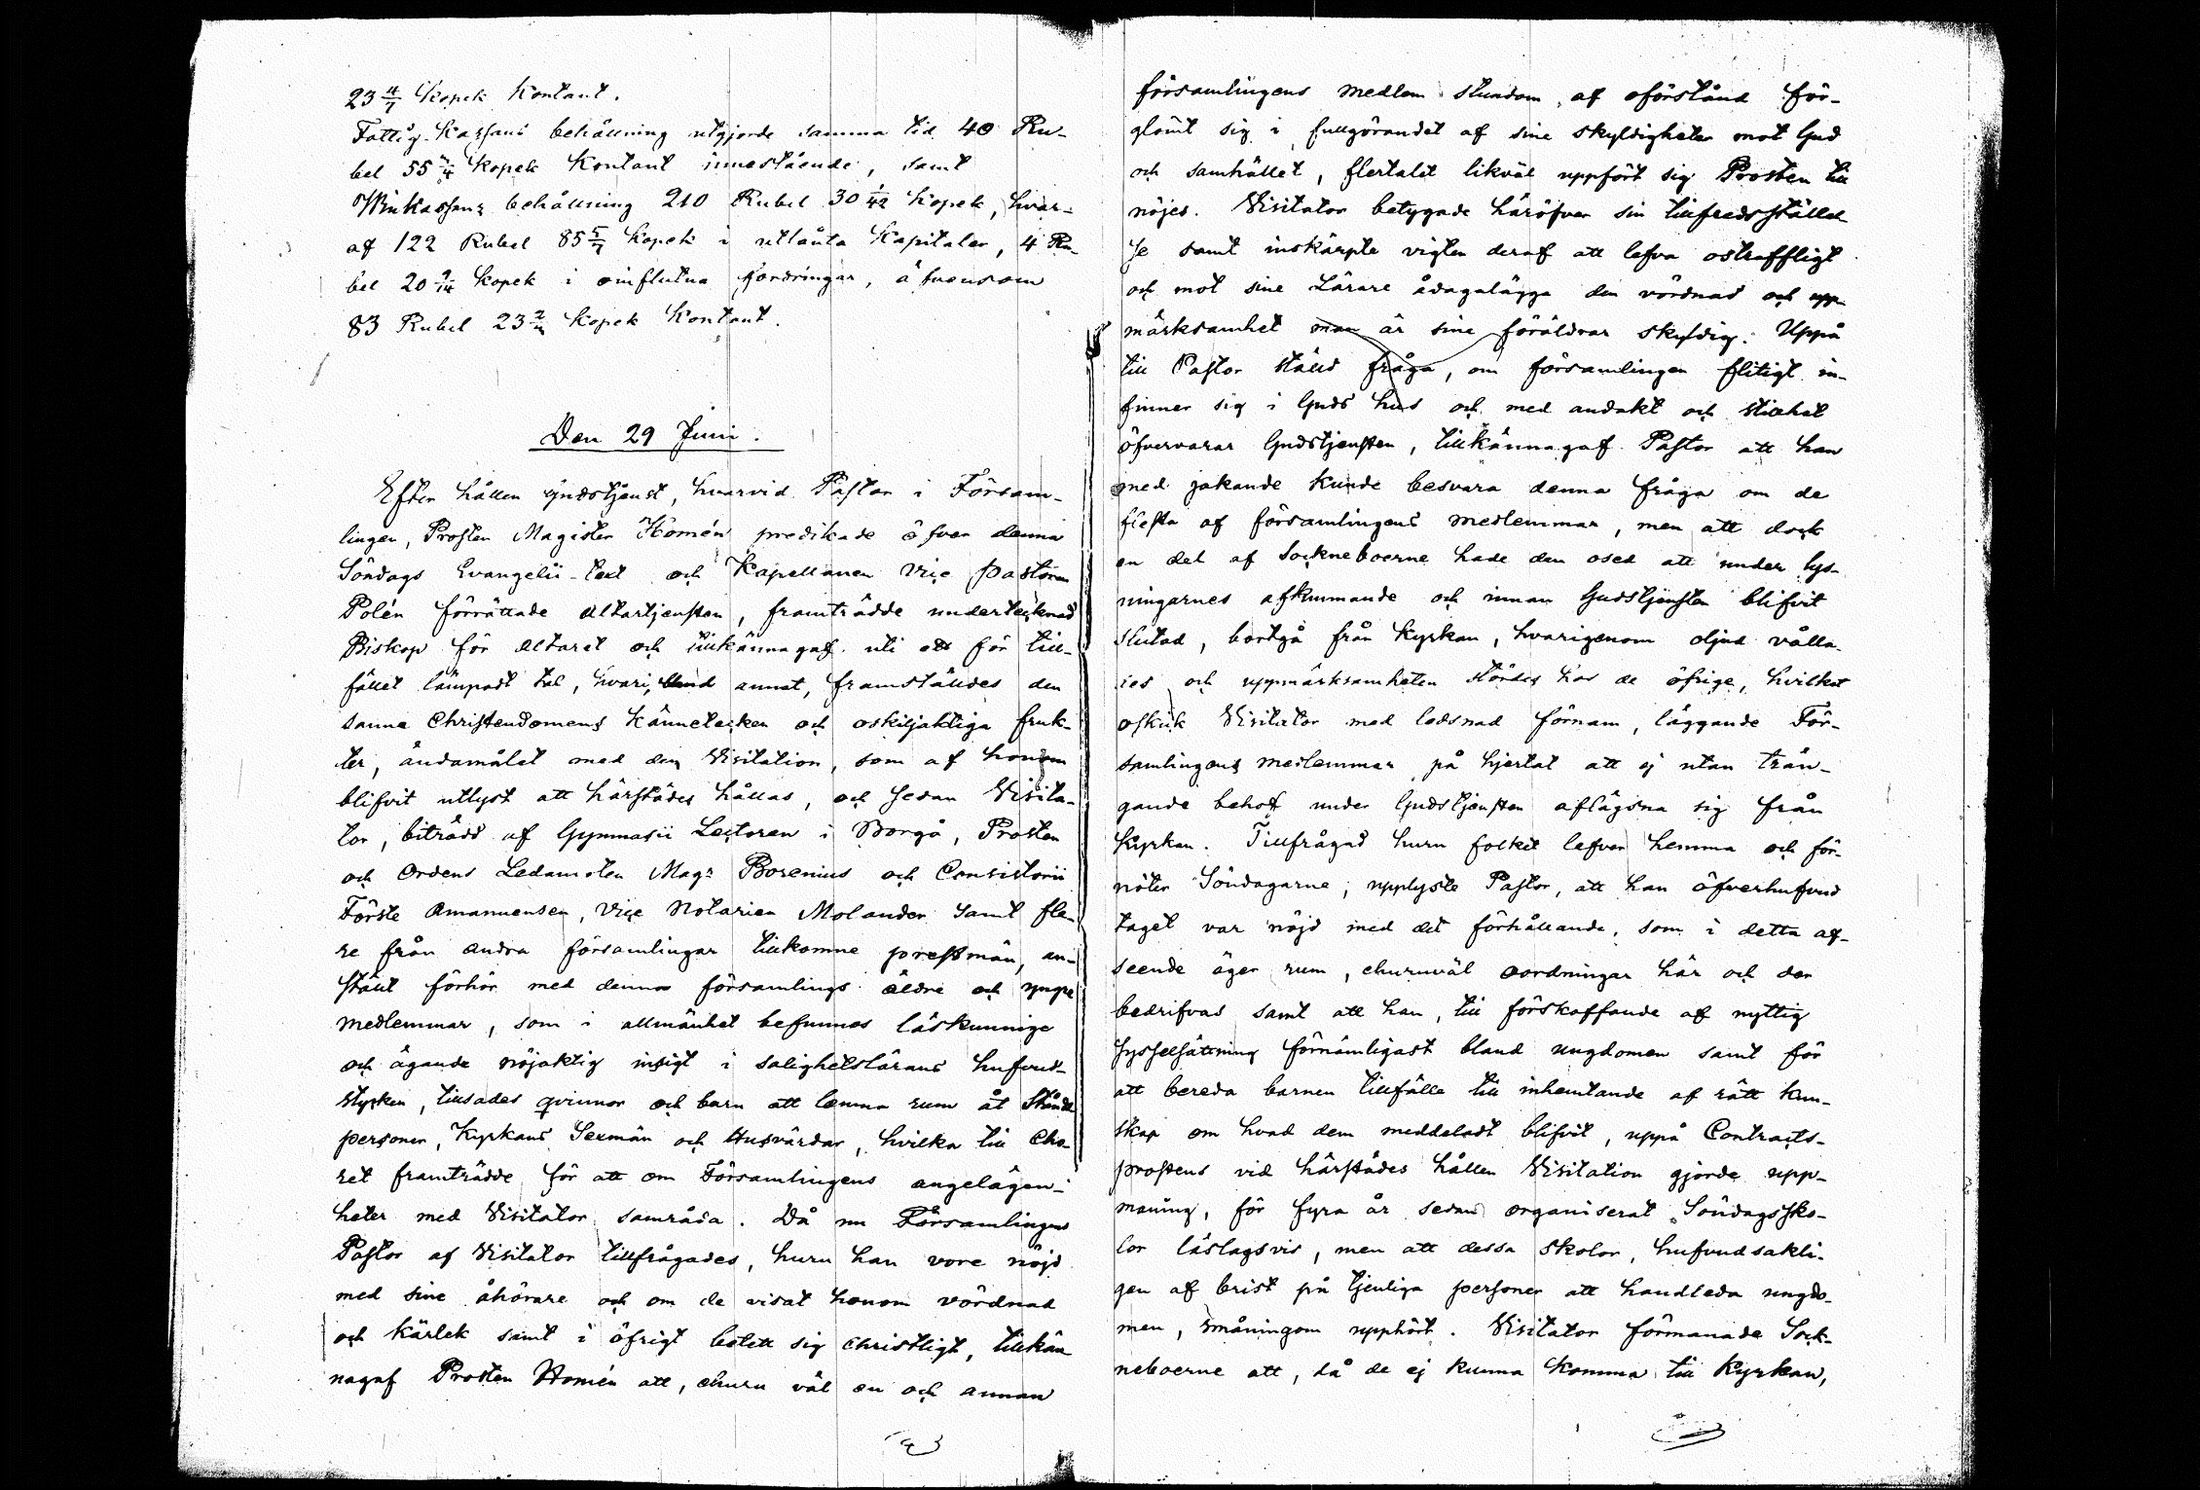 23 4/7 Kopek Kontant.
Fattig-Kassans behållning utgjorde samma tid 40 Ru-
bel 55 Kopek Kontant innestående, samt
Winkassans behållning 210 Rubel 30 Kopek, hvar-
af 122 Rubel 85 5/7 Kopek i utlånta Kapitaler, 4 Ru-
bel 20 Kopek i oinflutna fordringar, äfvensom
83 Rubel 23 Kopek Kontant.
Den 29 Juni.
Efter hållen Gudstjenst, hvarvid Pastor i Försam-
lingen, Prosten Magister Homén predikade öfver denna
Söndags Evangelii-text och Kapellanen Vice pastoren
Polén förrättade Altartjensten, framträdde undertecknad
Biskop för Altaret och tillkännagaf uti ett för till-
fället lämpadt tal, hvari, bland annat, framställdes den
sanna Christendomens Kännetecken och oskiljaktiga fruk-
ter, ändamålet med den Visitation, som af honom
blifvit utlyst att härstädes hållas, och sedan Visita-
tor, biträdd af Gymnasii Lectoren i Borgå, Prosten
och Ordens Ledamoten Magr Borenius och Consistorii
Förste Amanuensen, Vice Notarien Molander samt fle-
re från andra församlingar tillkomne prestmän, an-
stält förhör med denna församlings äldre och yngre
medlemmar, som i allmänhet befunnos läskunnige
och ägande nöjaktig insigt i salighetslärans hufvud-
stycken, tillsades qvinnor och barn att lemna rum åt Stånds
personer, Kyrkans Sexmän och Husvärdar, hvilka till Cho-
ret framträdde för att om Församlingens angelägen-
heter med Visitator samråda. Då nu Församlingens
Pastor af Visitator tillfrågades, huru han vore nöjd
med sine åhörare och om de visat honom vördnad
och kärlek samt i öfrigt betett sig christligt, tillkän-
nagaf Prosten Homén att, ehuru väl en och annan
församlingens medlem stundom, af oförstånd för-
glömt sig i fullgörandet af sine skyldigheter mot Gud
och samhället, flertalet likväl uppfört sig Prosten till
nöjes. Visitator betygade häröfver sin tillfredsställel-
se samt inskärpte vigten deraf att lefva ostraffligt
och mot sine Lärare ådagalägga den vördnad och upp-
märksamhet man är sine föräldrar skyldig. Uppå
till Pastor ställd fråga, om församlingen flitigt in-
finner sig i Guds hus och med andakt och stillhet
öfvervarar Gudstjensten, tillkännagaf Pastor att han
med jakande kunde besvara denna fråga om de
flesta af församlingens medlemmar, men att dock
en del af Sockneboerne hade den osed att under lys-
ningarnes afkunnande och innan Gudstjensten blifvit
slutad, bortgå från Kyrkan, hvarigenom oljud vålla-
des och uppmärksamheten stördes hos de öfrige, hvilket
oskick Visitator med ledsnad förnam, läggande För-
samlingens medlemmar på hjertat att ej utan trän-
gande behof under Gudstjensten aflägsna sig från
Kyrkan. Tillfrågad huru folket lefver hemma och för-
nöter Söndagarne, upplyste Pastor, att han öfverhufvud
taget var nöjd med det förhållande, som i detta af-
seende äger rum, ehuruväl oordningar här och der
bedrifvas samt att han, till förskaffande af nyttig
sysselsättning förnämligast bland ungdomen samt för
att bereda barnen tillfälle till inhemtande af rätt kun-
skap om hvad dem meddeladt blifvit, uppå Contracts-
prostens vid härstädes hållen Visitation gjorde upp-
maning, för fyra år sedan organiserat Söndagssko-
lor läslagsvis, men att dessa skolor, hufvudsakli-
gen af brist på tjenliga personer att handleda ungdo-
men, småningom upphört. Visitator förmanade Sock-
neboerne att, då de ej kunna komma till Kyrkan,